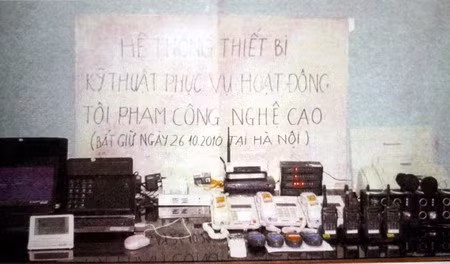 HỆ THỐNG THIẾT BỊ
KỸ THUẬT PHỤC VỤ HOẠT ĐỘNG
TỘI PHẠM CÔNG NGHỆ CAO
(BẮT GIỮ NGÀY 26.10.2010 TẠI HÀ NỘI)